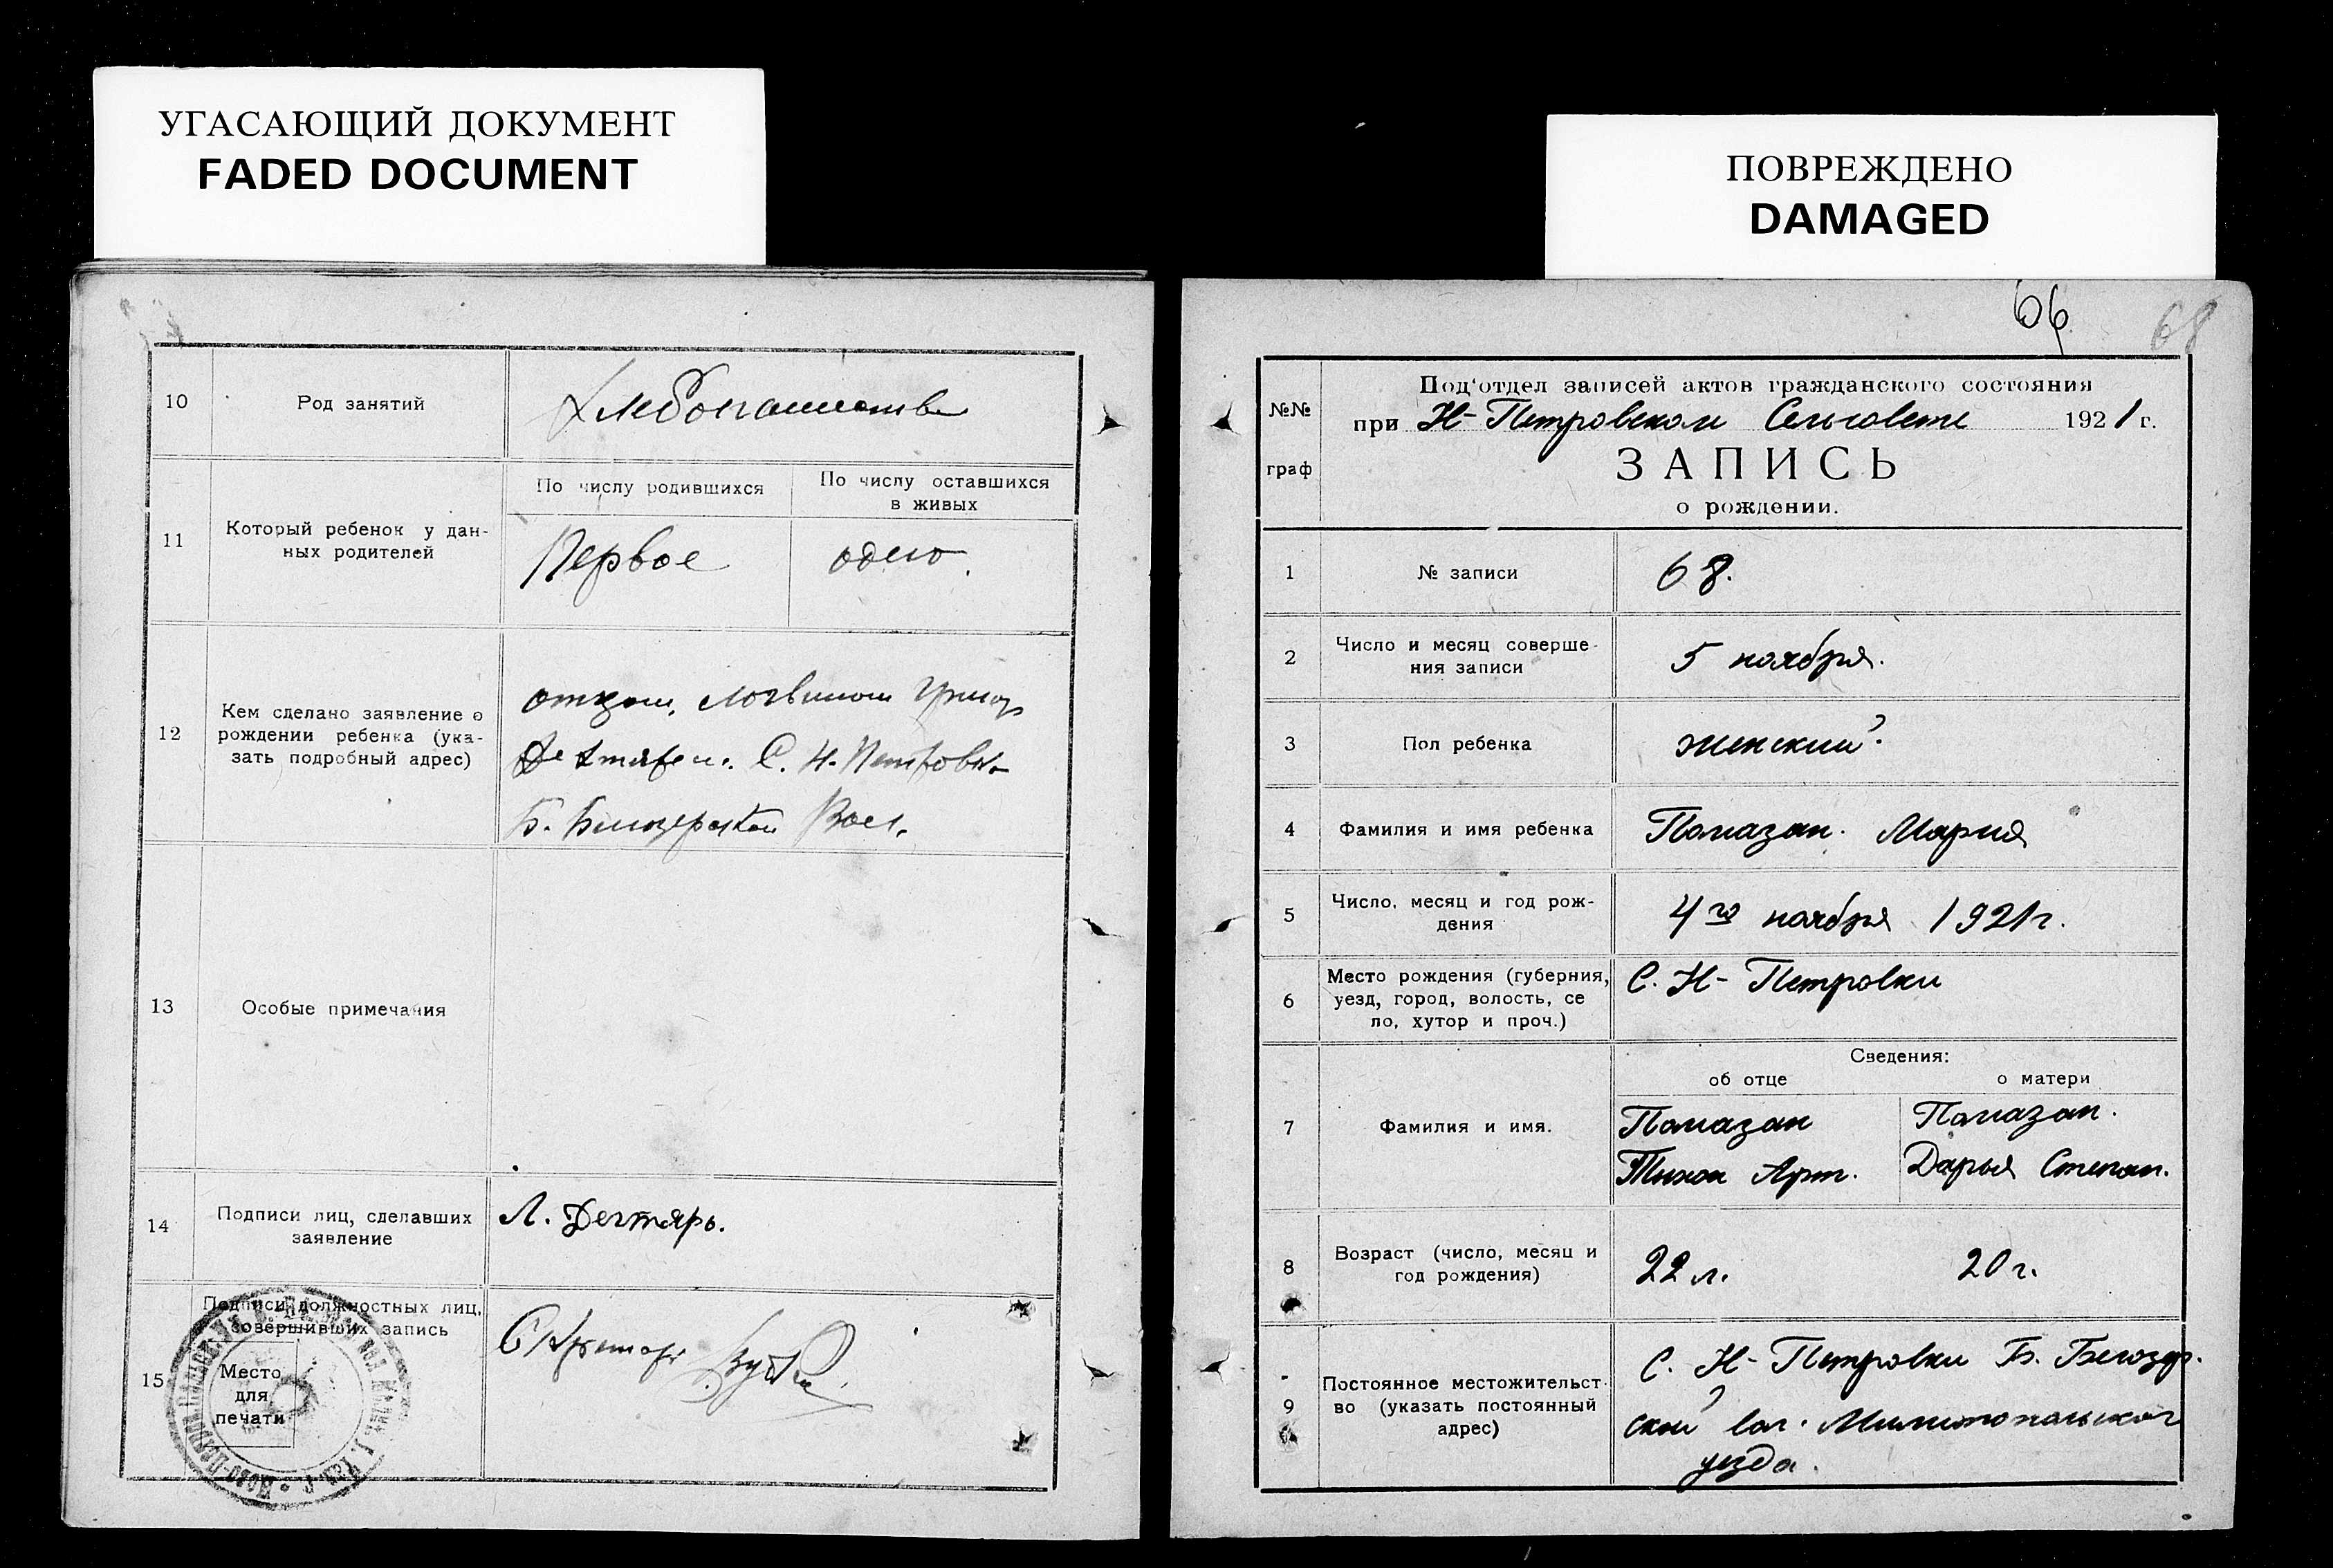 УГАСАЮЩИЙ ДОКУМЕНТ
FADED DOCUMENT
10
Род занятий
Хлебопашество
11
Который ребенок у дан-
ных родителей
По числу родившихся
Первое
По числу оставшихся
в живых
одно.
12
Кем сделано заявление о
рождении ребенка (ука-
зать подробный адрес)
отцом, Логвином Григор
Дегтярем. С. Н-Петровки
Б. Белозерской Вол.
13
Особые примечания
14
Подписи лиц, сделавших
заявление
Л. Дегтярь.
15
Подписи должностных лиц,
совершивших запись
Место
для
печати
Секретарь
ПОВРЕЖДЕНО
DAMAGED
66
68
№№
граф
Под'отдел записей актов гражданского состояния
при Н-Петровском Сельсовете 1921 г.
ЗАПИСЬ
о рождении.
1
№ записи
68.
2
Число и месяц соверше-
ния записи
5 ноября.
3
Пол ребенка
женский.
4
Фамилия и имя ребенка
Помазан. Мария
5
Число, месяц и год рож-
дения
4го ноября 1921г.
6
Место рождения (губерния,
уезд, город, волость, се
ло, хутор и проч.)
С. Н-Петровки
Сведения:
об отце
о матери
7
Фамилия и имя.
Помазан
Тихон Арт.
Помазан.
Дарья Степан.
8
Возраст (число, месяц и
год рождения)
22 л.
20 г.
9
Постоянное местожительст-
во (указать постоянный
адрес)
С. Н-Петровки Б. Белозер.
ской вол. Мелитопольског
уезда.